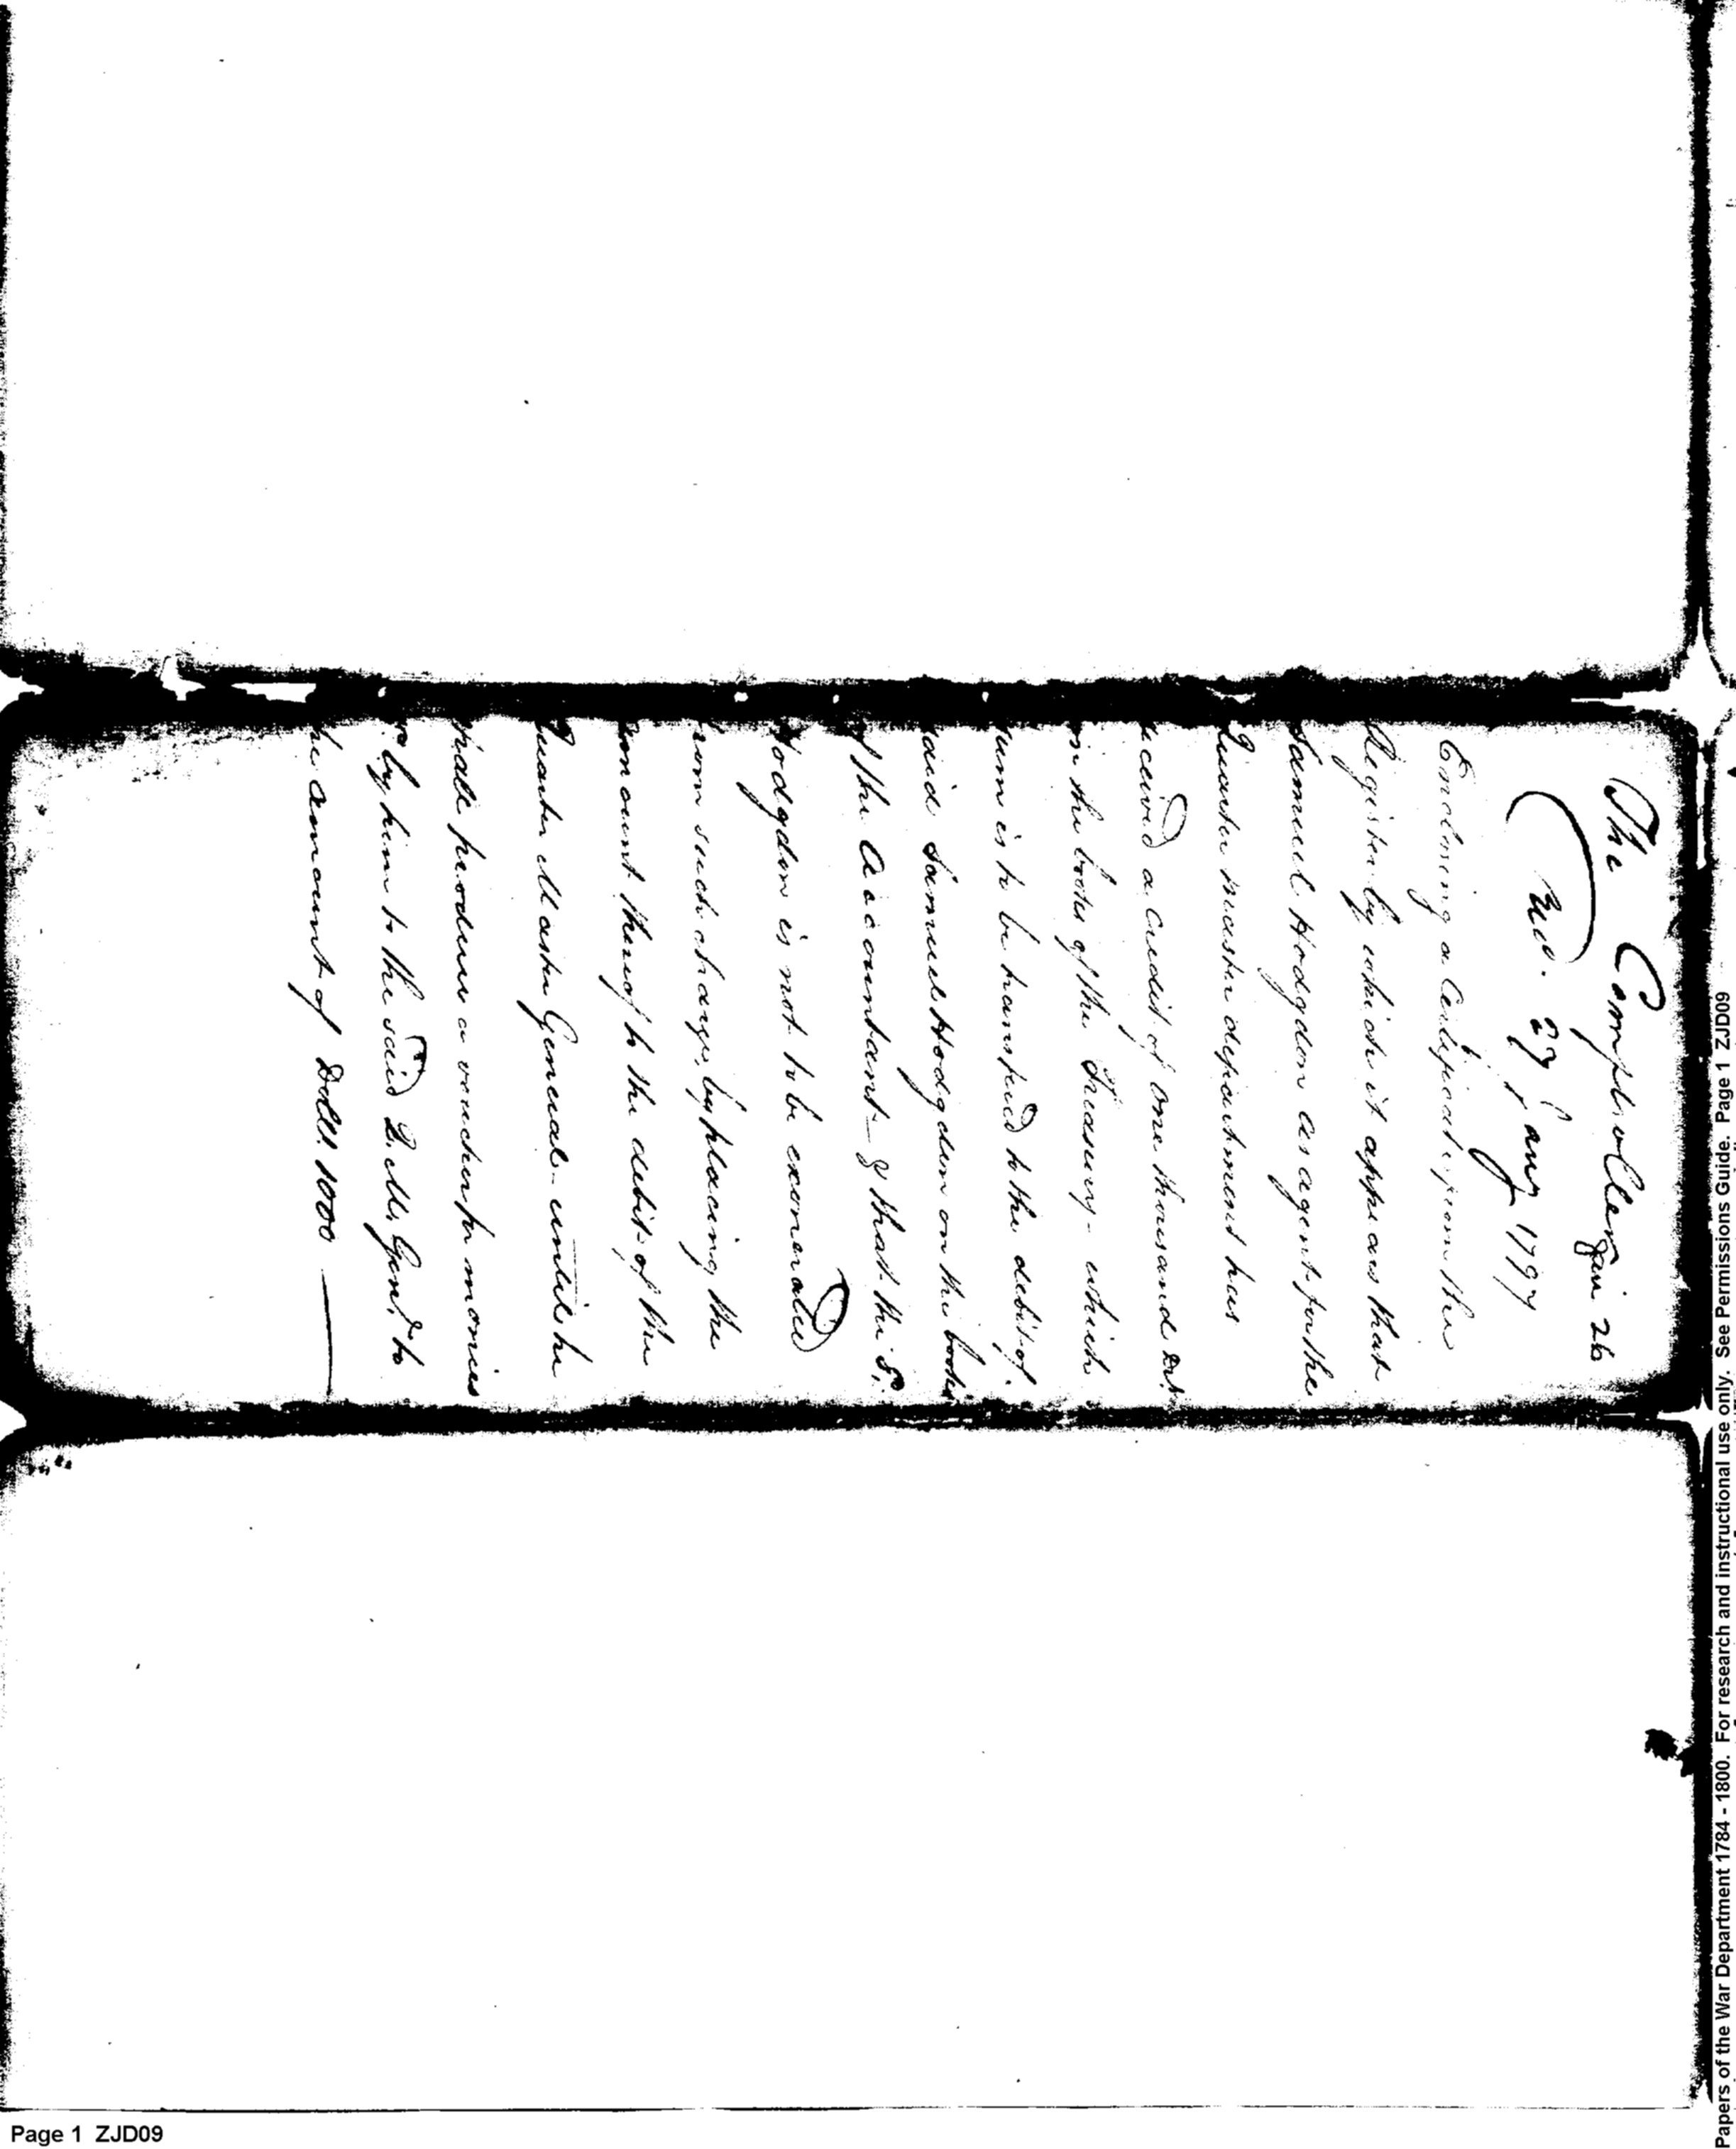 The Comptroller
Jan 26
Rec. 27 Jany 1797
Enclosing a Certificate from the
Register by which it appears that
Samuel Hodgdon as agent for the
Quarter master department has
received a credit of one thousand Dolls
in the books of the Treasury - which
sum is to be transfered to the debit of
said Samuel Hodgdon on the books
of the Accountant - & that the S.
Hodgdon is not to be exonerated
from such charge, by placing the
amount thereof to the debit of the
Quarter Master General - untill he
shall produce a voucher for monies
by him to the said Q. M. Genl. to
the amount of Dolls. 1000
Page 1 ZJD09
Papers of the War Department 1784 - 1800. For research and instructional use only. See Permissions Guide. Page 1 ZJD09